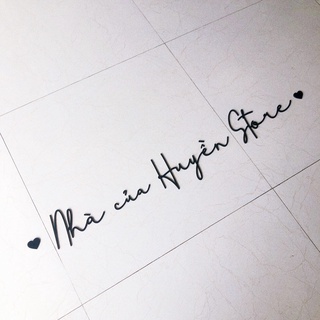 Nhà của Huyền Store